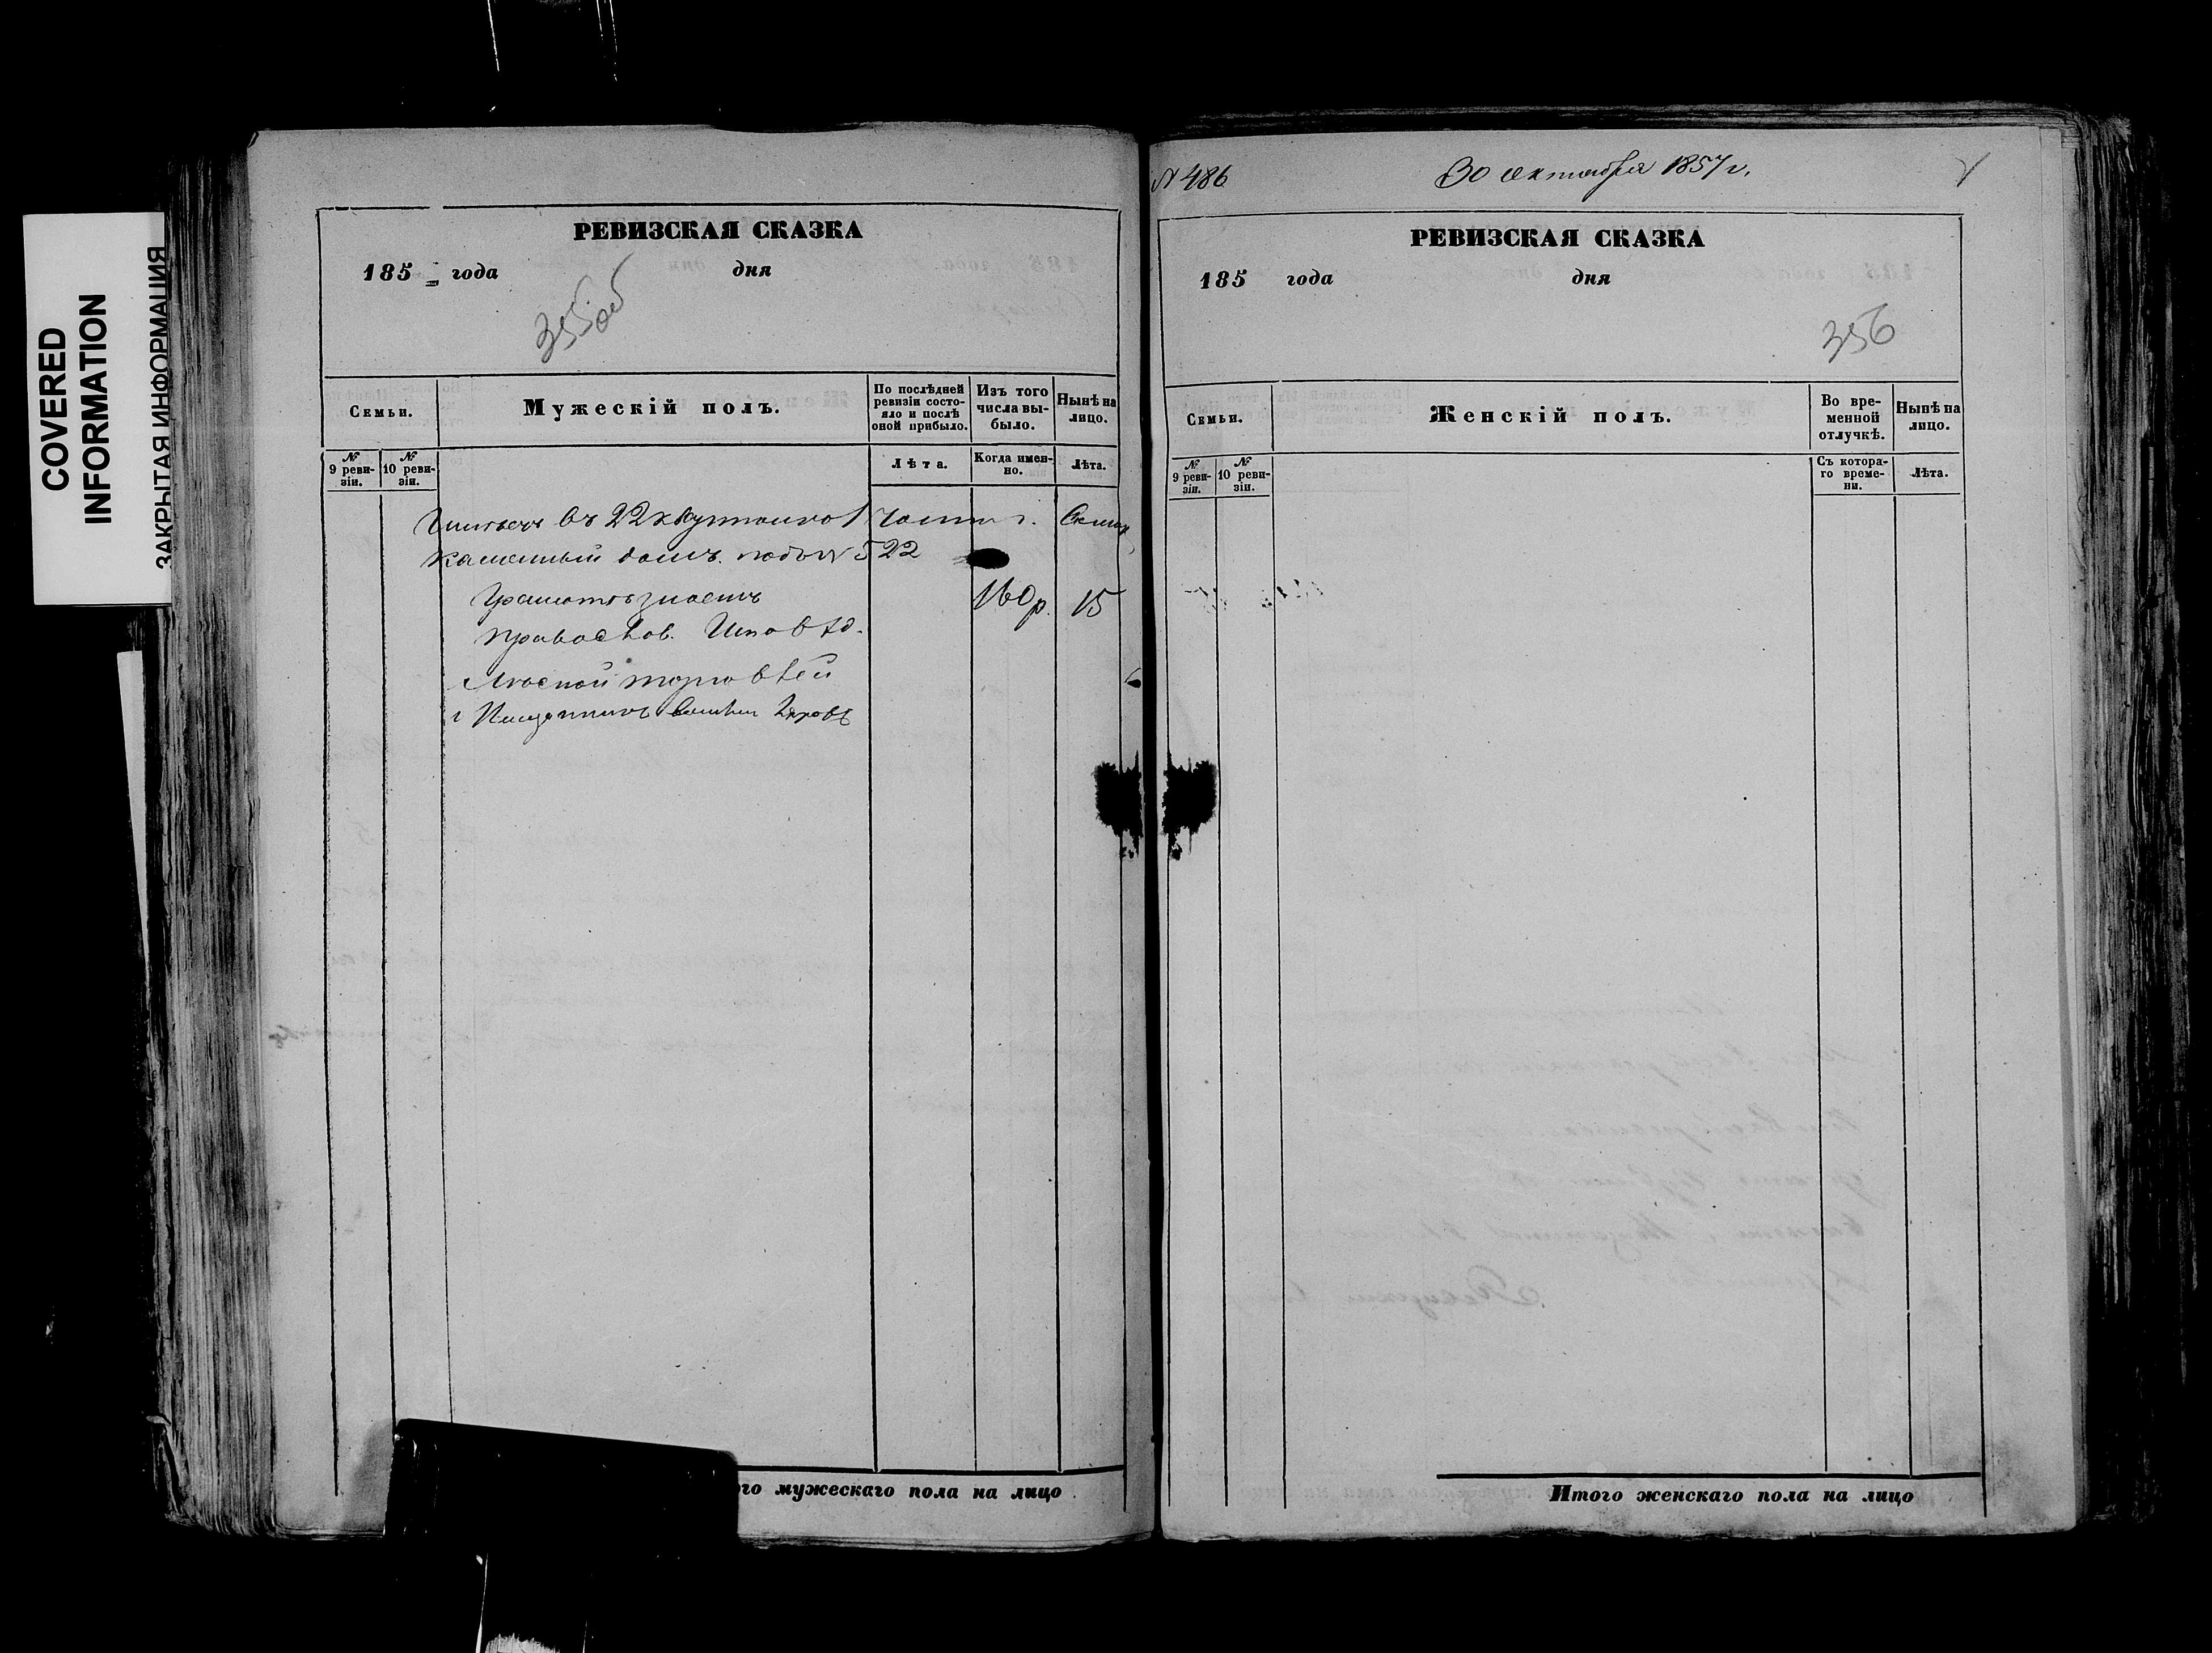 COVERED
INFORMATION
ЗАКРЫТАЯ ИНФОРМАЦИЯ
РЕВИЗСКАЯ СКАЗКА
185 года дня
355об
Семьи.
Мужескій полъ.
По послѣдней ревизіи состояло и послѣ оной прибыло.
Изъ того числа выбыло.
Нынѣ на лицо.
№ 9 ревизіи.
№ 10 ревизіи.
Лѣта.
Когда именно.
Лѣта.
въ 22 1 части
каменный домъ. подъ № 522
Грамотѣ знаетъ 160 р. 15
Православ. Исповѣд.
торговлей
го мужескаго пола на лицо
№ 486
30 октября 1857 г.
РЕВИЗСКАЯ СКАЗКА
185 года дня
356
Семьи.
Женскій полъ.
Во временной отлучкѣ.
Нынѣ на лицо.
№ 9 ревизіи.
№ 10 ревизіи.
Съ котораго времени.
Лѣта.
Итого женскаго пола на лицо